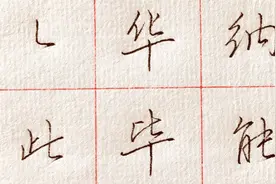 ㇄ 华 纳
此 毕 能